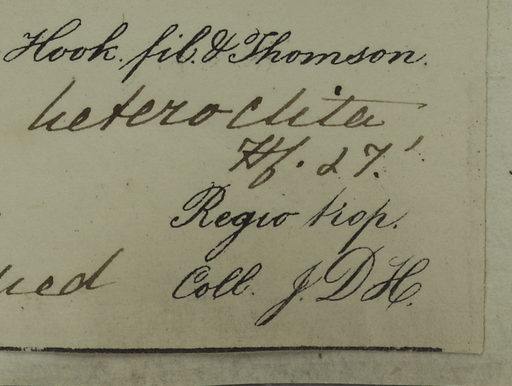 Hook. fil. & Thomson.
heteroclita
Hf. & T.
Regio trop.
Coll. J. D H.